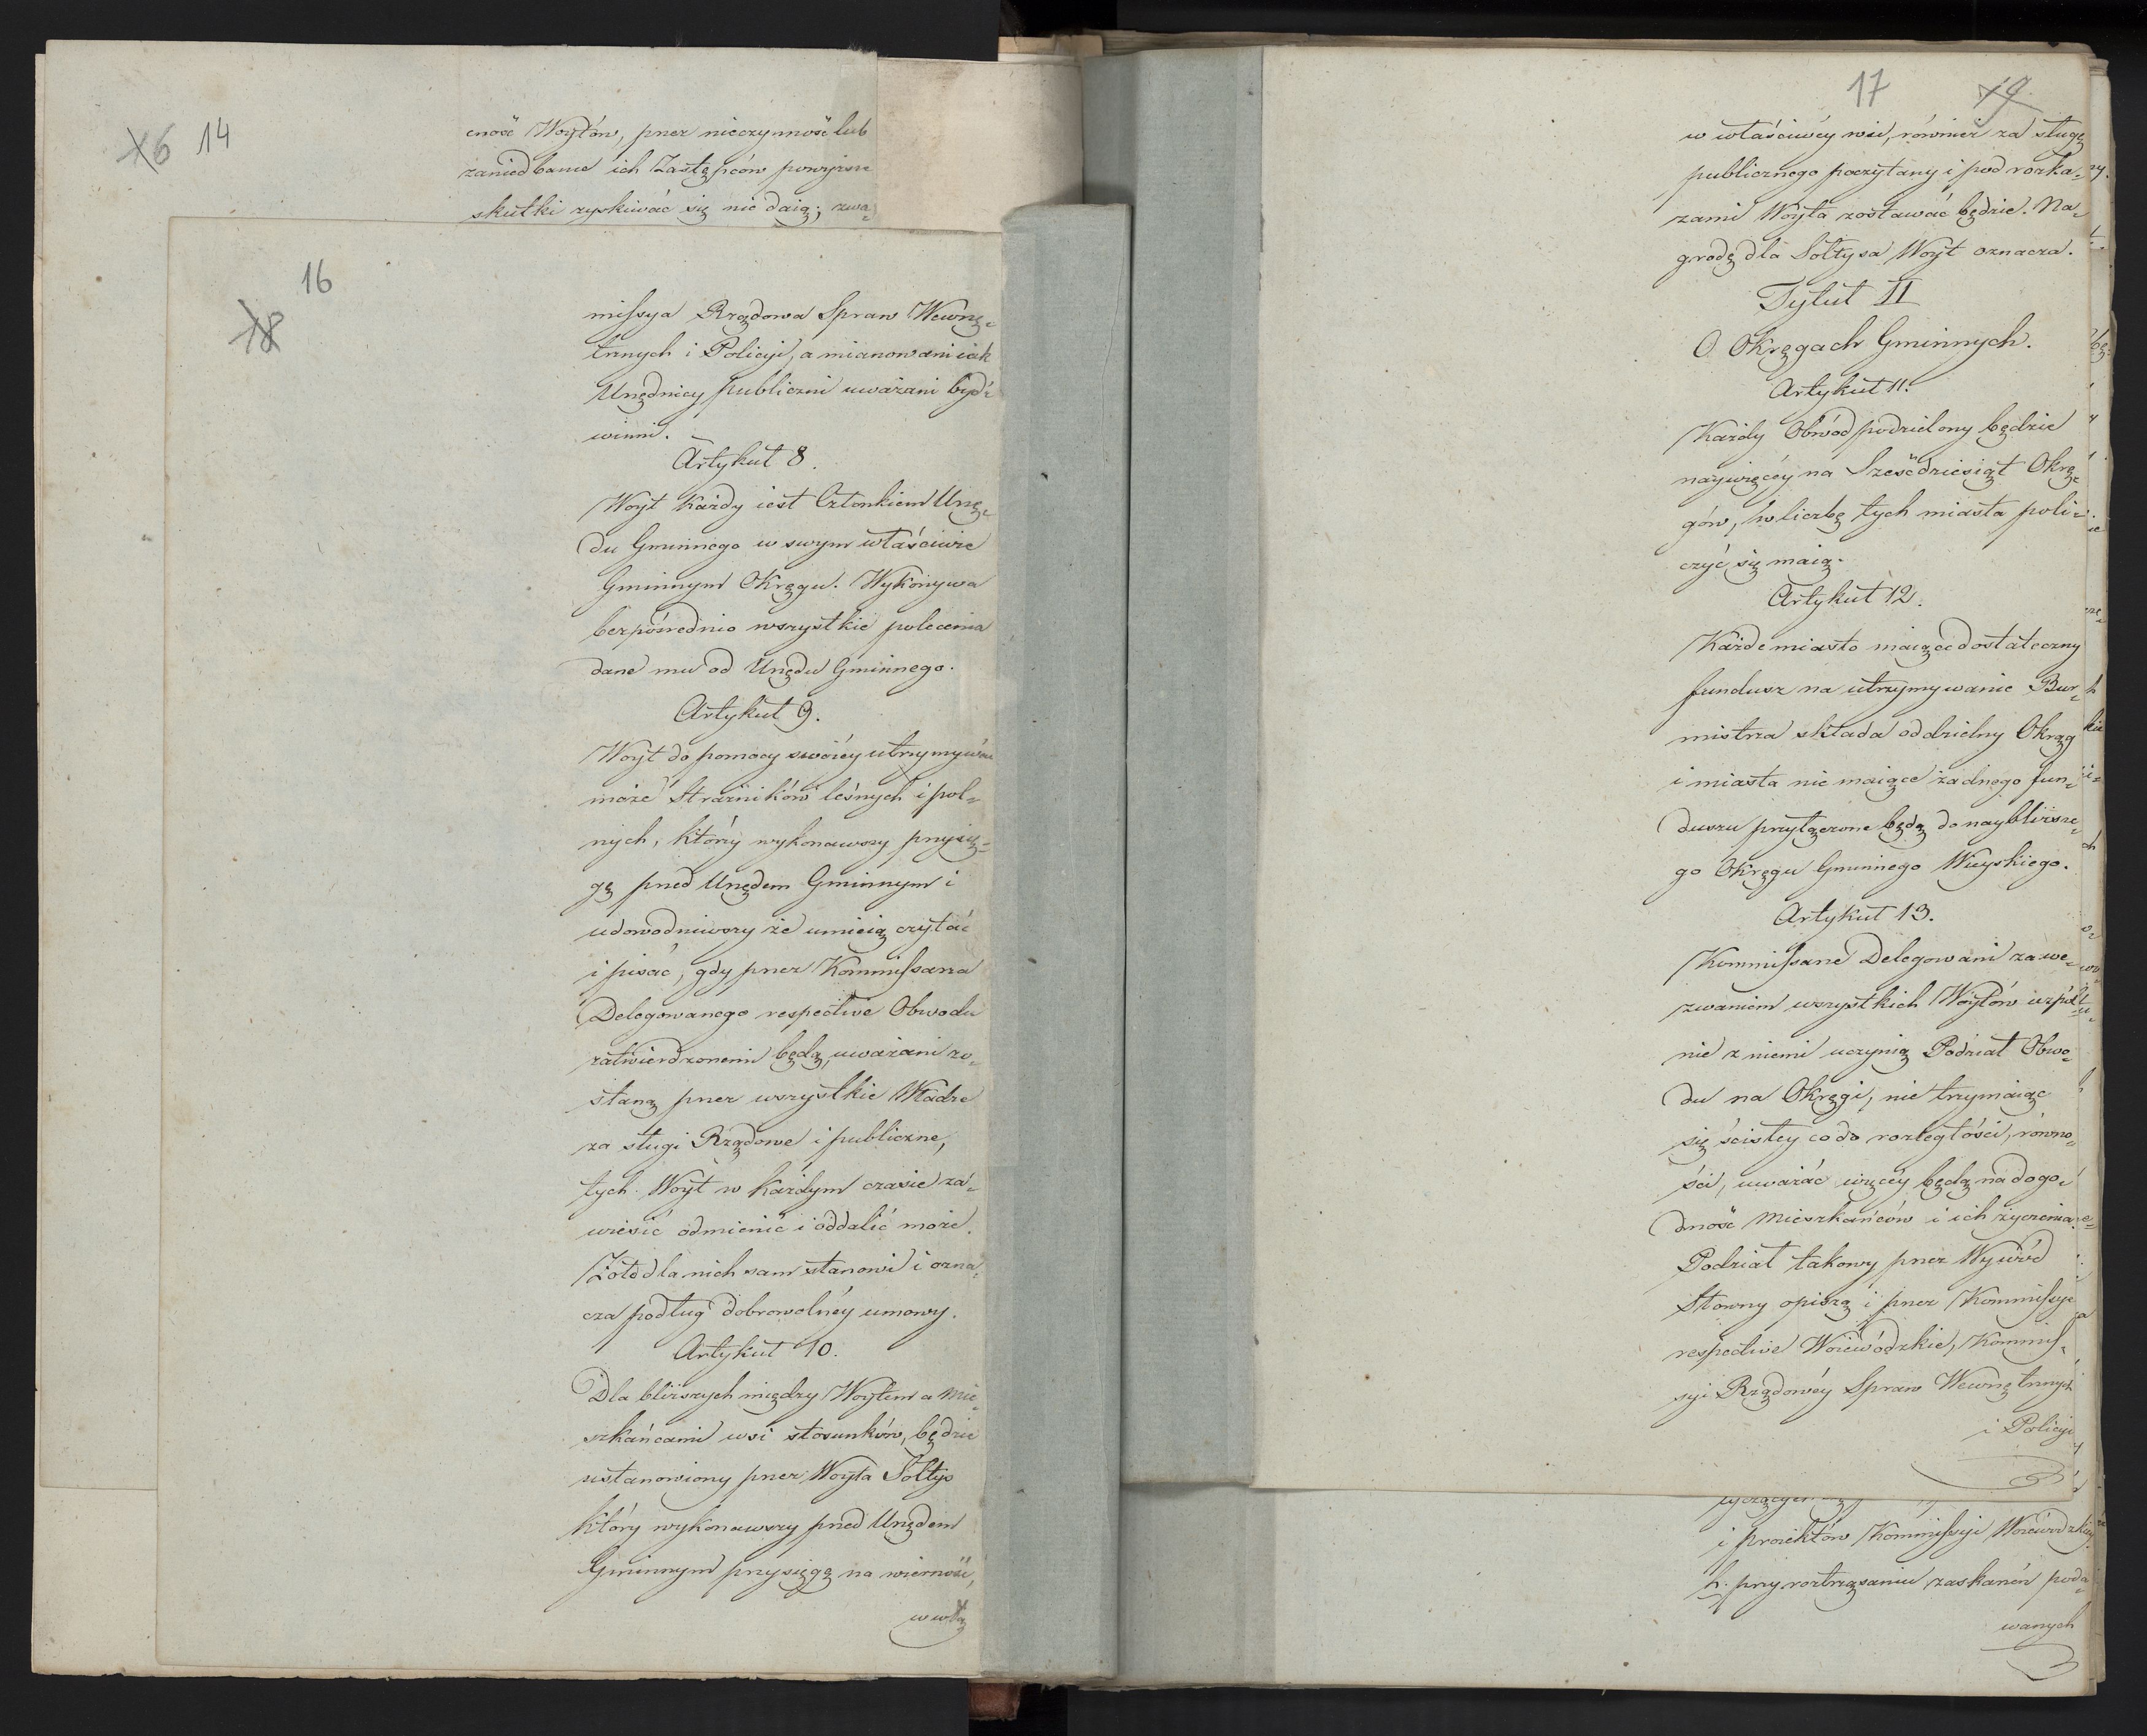 16 14
cność Woytów, przez nieczynność lub
zaniedbanie ich Zastępców powyższe
skutki zyskiwać się nie daią; zwa-
16
18
missya Rządowa Spraw Wewnę-
trznych i Policyi, a mianowani iak
Urzędnicy publiczni uważani bydź
winni.
Artykuł 8.
Woyt każdy iest Członkiem Urzę-
du Gminnego w swym właściwie
Gminnym Okręgu. Wykonywa
bezpośrednio wszystkie polecenia
dane mu od Urzędu Gminnego.
Artykuł 9.
Woyt do pomocy swoiéy utrzymywać
może Strażników leśnych i pol-
nych, którzy wykonawszy przysię-
gę przed Urzędem Gminnym i
udowodniwszy że umieią czytać
i pisać, gdy przez Kommissarza
Delegowanego respective Obwodu
zatwierdzonemi będą, uważani zo-
staną przez wszystkie Władze
za sługi Rządowe i publiczne,
tych Woyt w każdym czasie za-
wiesić odmienić i oddalić może.
Żołd dla nich sam stanowi i ozna-
cza podług dobrowolnéy umowy.
Artykuł 10.
Dla bliższych między Woytem a mie-
szkańcami wsi stosunków, będzie
ustanowiony przez Woyta Sołtys
który wykonawszy przed Urzędem
Gminnym przysięgę na wierność,
w wła
17 19
w właściwéy wsi, również za sługę
publicznego poczytany i pod rozka-
zami Woyta zostawać będzie. Na-
grodę dla Sołtysa Woyt oznacza.
Tytuł II
O Okręgach Gminnych.
Artykuł 11.
Każdy Obwód podzielony będzie
naywięcéy na Sześćdziesiąt Okrę-
gów, w liczbę tych miasta poli-
czyć się maią.
Artykuł 12.
Każde miasto maiące dostateczny
fundusz na utrzymywanie Bur-
mistrza składa oddzielny Okrąg
i miasta nie maiące żadnego fun-
duszu przyłączone będą do naybliższe-
go Okręgu Gminnego Wieyskiego.
Artykuł 13.
Kommissarze Delegowani za we-
zwaniem wszystkich Woytów wspól-
nie z niemi uczynią Podział Obwo-
du na Okręgi, nie trzymaiąc
się ścisłey co do rozległości, równo-
ści, uważać więcéy będą na dogo-
dność Mieszkańców i ich życzenia.
Podział takowy przez Wywód
Słowny opiszą i przez Kommissye
respective Woiewódzkie, Kommis-
syi Rządowéy Spraw Wewnętrznych
i Policyi
i proiektów Kommissyi Woiewódzkiéy
h. przy roztrząsaniu zaskarżeń poda-
wanych